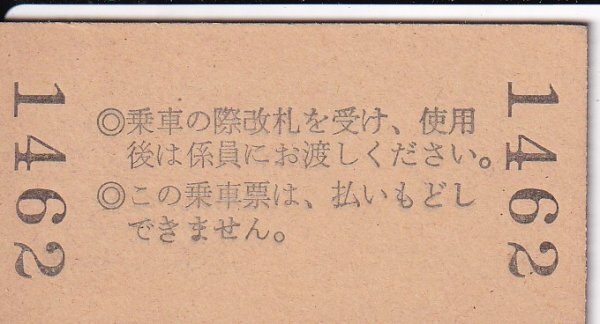 1462
◎乗車の際改札を受け、使用
後は係員にお渡しください。
◎この乗車票は、払いもどし
できません。
1462